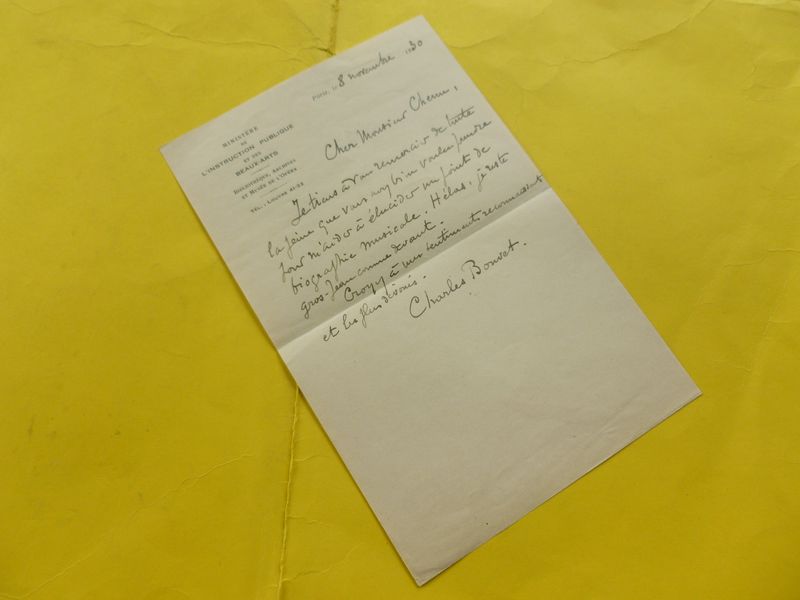 MINISTÈRE
DE
L'INSTRUCTION PUBLIQUE
ET DES
BEAUX-ARTS
BIBLIOTHÈQUE, ARCHIVES
ET MUSÉE DE L'OPÉRA
TÉL. : LOUVRE 41-23
Paris, le 8 novembre 1930
Cher Monsieur
Je tiens à vous remercier de toute
la peine que vous avez bien voulu prendre
pour m'aider à élucider un point de
biographie musicale. Hélas, je reste
gros-Jean comme devant.
Croyez à mes sentiments reconnaissants
et les plus dévoués.
Charles Bouvet.